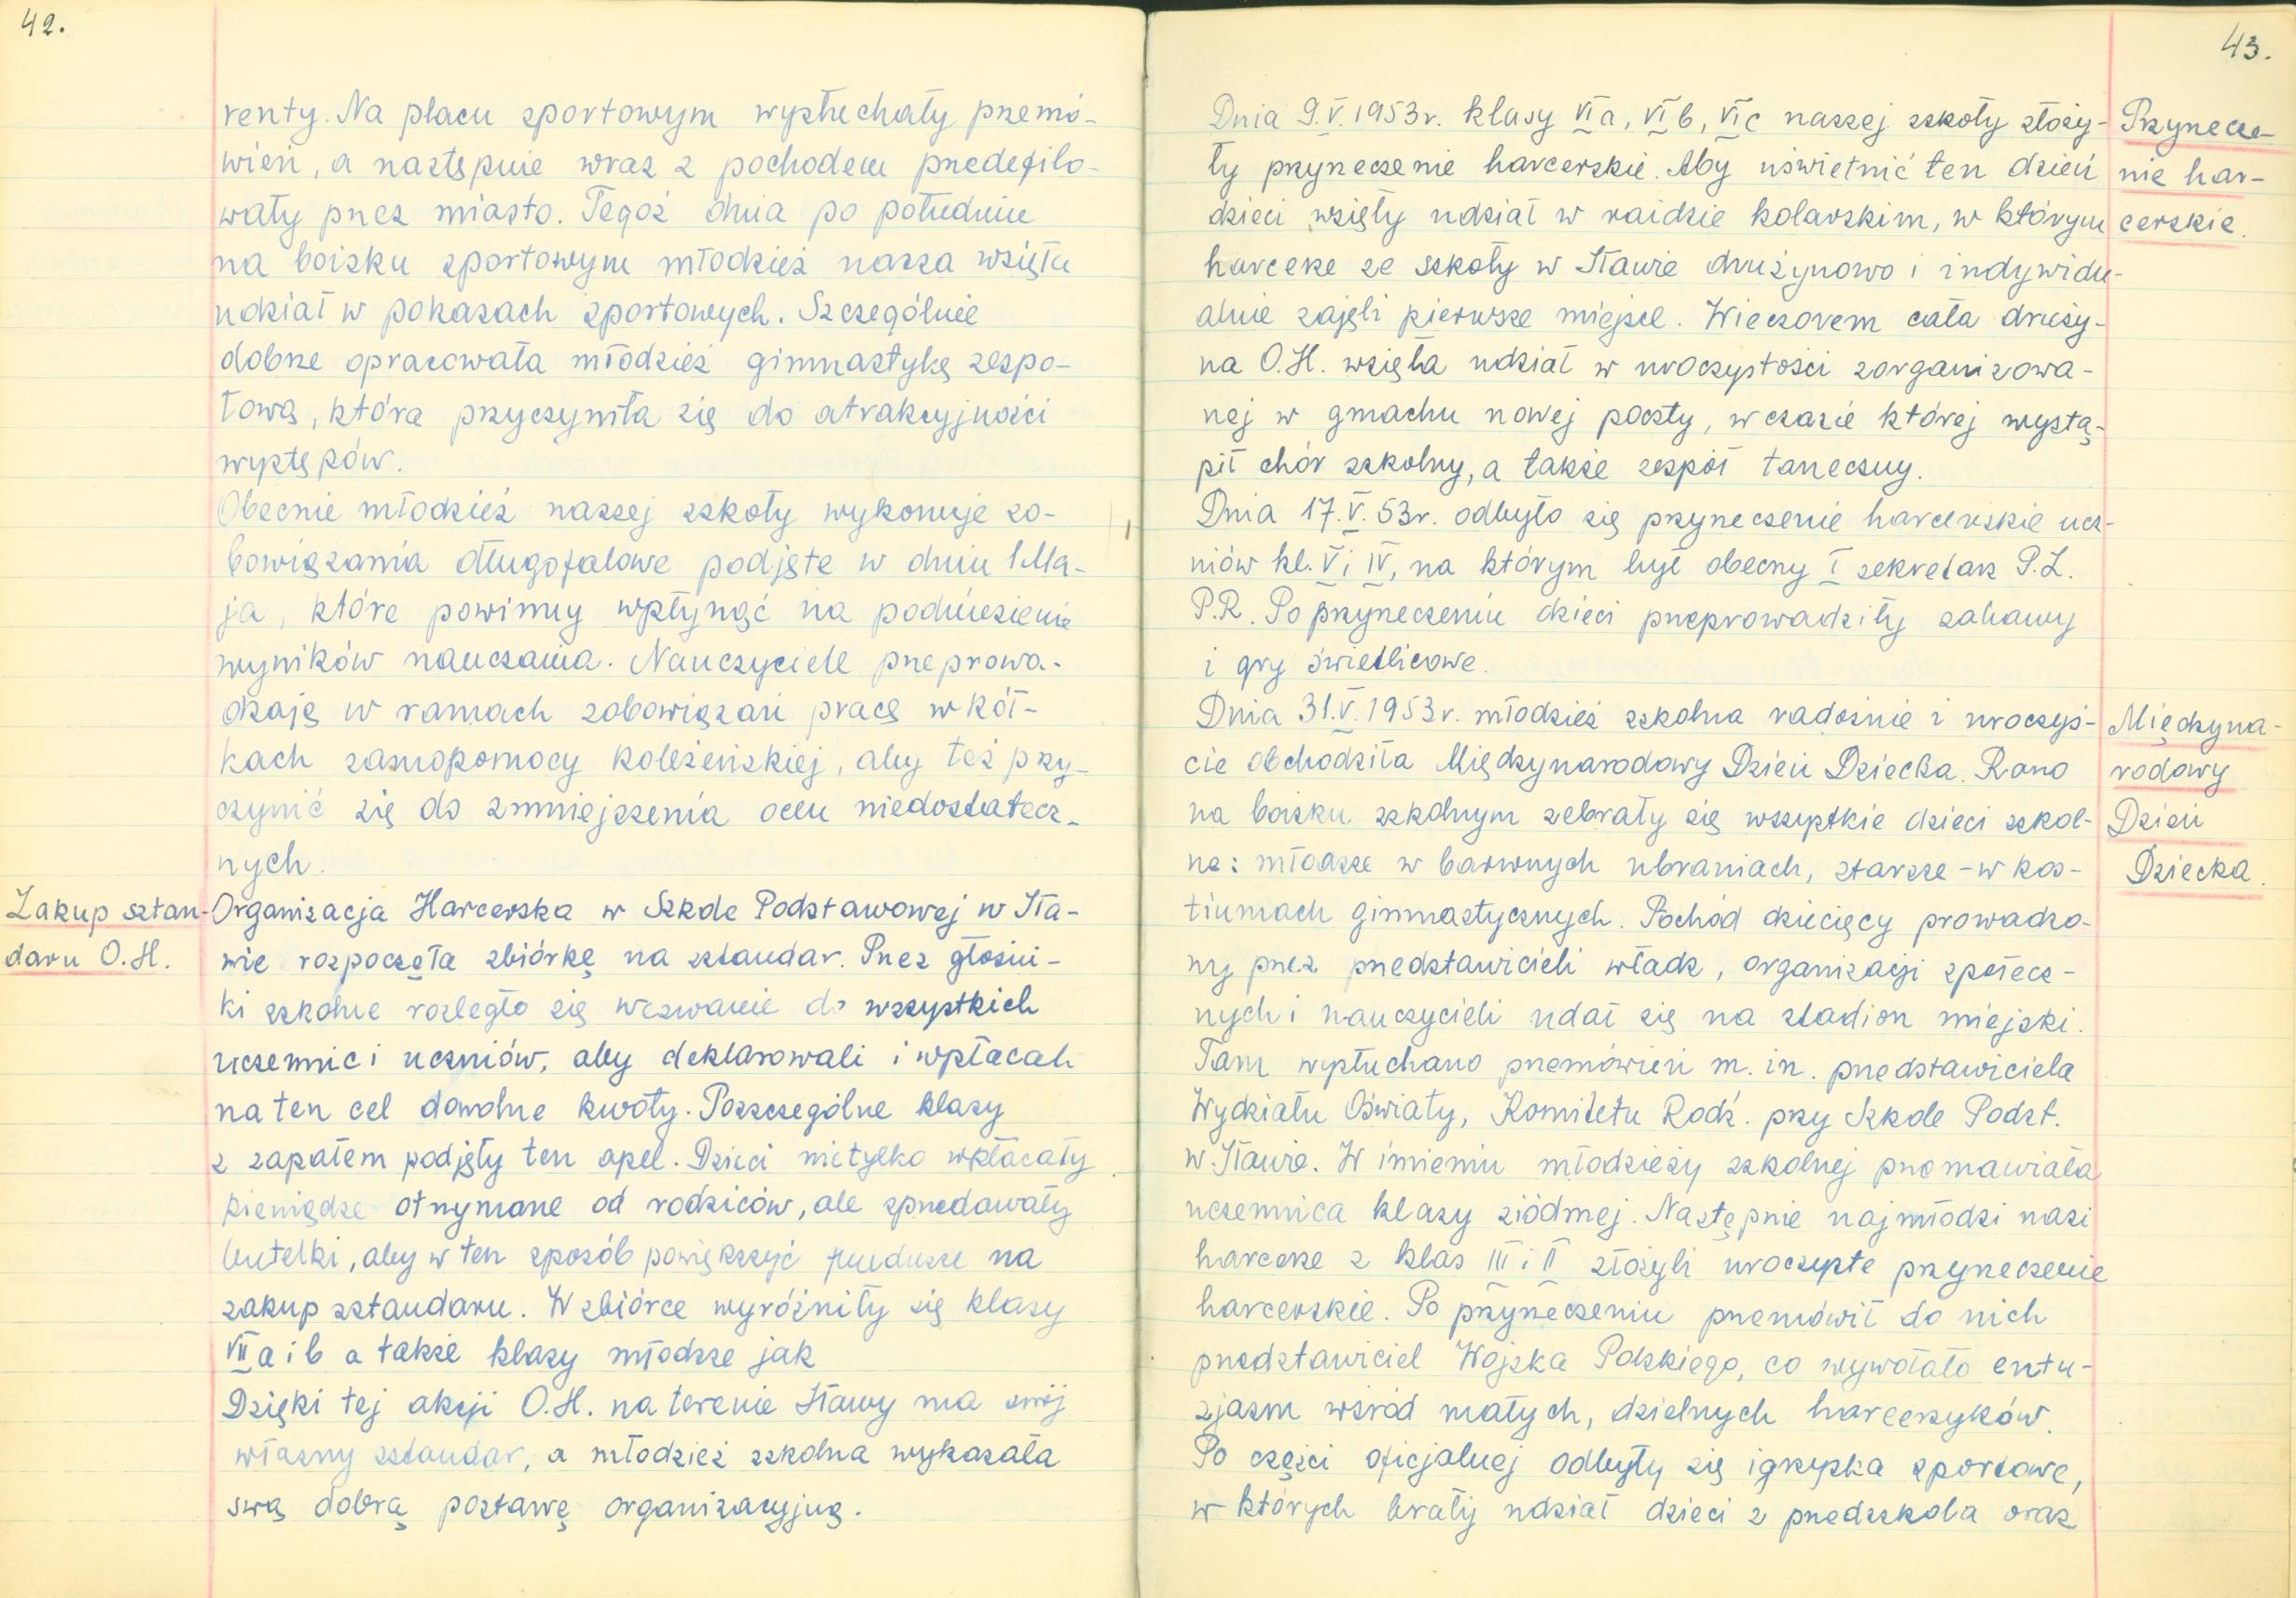 42.
renty. Na placu sportowym wysłuchały przemó-
wień, a następnie wraz z pochodem przedefilo-
wały przez miasto. Tegoż dnia po południu
na boisku sportowym młodzież nasza wzięła
udział w pokazach sportowych. Szczególnie
dobrze opracowała młodzież gimnastykę zespo-
łową, która przyczyniła się do atrakcyjności
występów.
Obecnie młodzież naszej szkoły wykonuje zo-
bowiązania długofalowe podjęte w dniu 1 Ma-
ja, które powinny wpłynąć na podniesienie
wyników nauczania. Nauczyciele przeprowa-
dzają w ramach zobowiązań pracę w kół-
kach samopomocy koleżeńskiej, aby też przy-
czynić się do zmniejszenia ocen niedostatecz-
nych.
Zakup sztan-
daru O.H.
Organizacja Harcerska w Szkole Podstawowej w Iła-
wie rozpoczęła zbiórkę na sztandar. Przez głośni-
ki szkolne rozległo się wezwanie do wszystkich
uczennic i uczniów, aby deklarowali i wpłacali
na ten cel dowolne kwoty. Poszczególne klasy
z zapałem podjęły ten apel. Dzieci nietylko wpłacały
pieniądze otrzymane od rodziców, ale sprzedawały
butelki, aby w ten sposób powiększyć fundusze na
zakup sztandaru. W zbiórce wyróżniły się klasy
VII a i b a także klasy młodsze jak
Dzięki tej akcji O.H. na terenie Iławy ma swój
własny sztandar, a młodzież szkolna wykazała
swą dobrą postawę organizacyjną.
43.
Przyrzecze-
nie har-
cerskie.
Dnia 9.V.1953r. klasy VI a, VI b, VI c naszej szkoły złoży-
ły przyrzeczenie harcerskie. Aby uświetnić ten dzień
dzieci wzięły udział w raidzie kolarskim, w którym
harcerze ze szkoły w Iławie drużynowo i indywidu-
alnie zajęli pierwsze miejsce. Wieczorem cała druży-
na O.H. wzięła udział w uroczystości zorganizowa-
nej w gmachu nowej poczty, w czasie której wystą-
pił chór szkolny, a także zespół taneczny.
Dnia 17.V.53r. odbyło się przyrzeczenie harcerskie ucz-
niów kl. V i IV, na którym był obecny I sekretarz P.Z.
P.R. Po przyrzeczeniu dzieci przeprowadziły zabawy
i gry świetlicowe.
Międzyna-
rodowy
Dzień
Dziecka.
Dnia 31.V.1953r. młodzież szkolna radośnie i uroczyś-
cie obchodziła Międzynarodowy Dzień Dziecka. Rano
na boisku szkolnym zebrały się wszystkie dzieci szkol-
ne: młodsze w barwnych ubraniach, starsze - w kos-
tiumach gimnastycznych. Pochód dziecięcy prowadzo-
ny przez przedstawicieli władz, organizacji społecz-
nych i nauczycieli udał się na stadion miejski.
Tam wysłuchano przemówień m. in. przedstawiciela
Wydziału Oświaty, Komitetu Rodz. przy Szkole Podst.
w Iławie. W imieniu młodzieży szkolnej przemawiała
uczennica klasy siódmej. Następnie najmłodsi nasi
harcerze z klas III i II złożyli uroczyste przyrzeczenie
harcerskie. Po przyrzeczeniu przemówił do nich
przedstawiciel Wojska Polskiego, co wywołało entu-
zjazm wśród małych, dzielnych harcerzyków.
Po części oficjalnej odbyły się igrzyska sportowe,
w których brały udział dzieci z przedszkola oraz